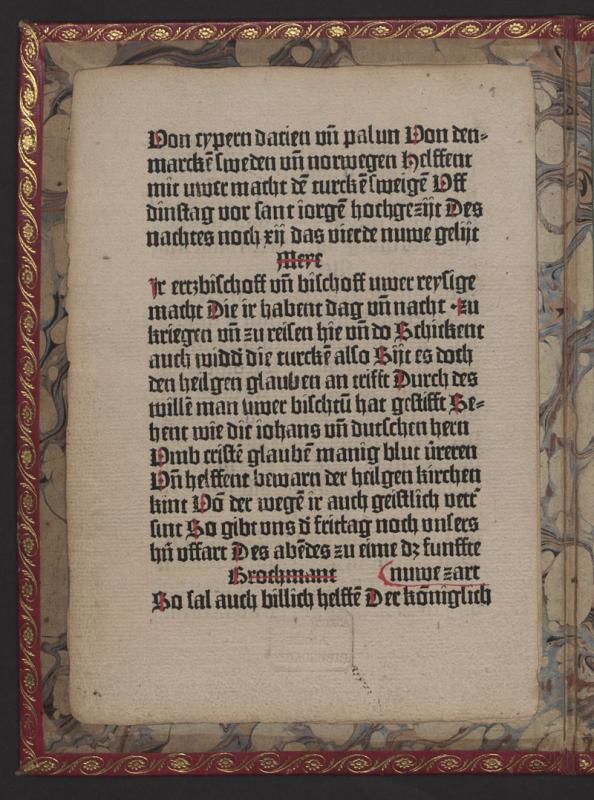 Von cypern dacien vñ palun Von den⸗
marckē sweden vñ norwegen Helffent
mit uwer macht dē turckē sweigē Vff
dinstag vor sant iorgē hochgezijt Des
nachtes noch xij das vierde nuwe gelijt
Meye
Ir ertzbischoff vñ bischoff uwer reysige
macht Die ir habent dag vñ nacht · Zu
kriegen vñ zu reisen hie vñ do Schickent
auch widd̄ die turckē also Sijt es doch
den heilgen glauben an trifft Durch des
willē man uwer bischtū hat gestifft Se⸗
hent wie die iohans vñ dutschen hern
Vmb cristē glaubē manig blut üreren
Vñ helffent bewarn der heilgen kirchen
kint Vō der wegē ir auch geistlich veť
sint So gibt vns d̄ fritag noch vnsers
hñ vffart Des abēdes zu eime dz funffte
Brochmant nuwe zart
So sal auch billich helffē Der kōniglich